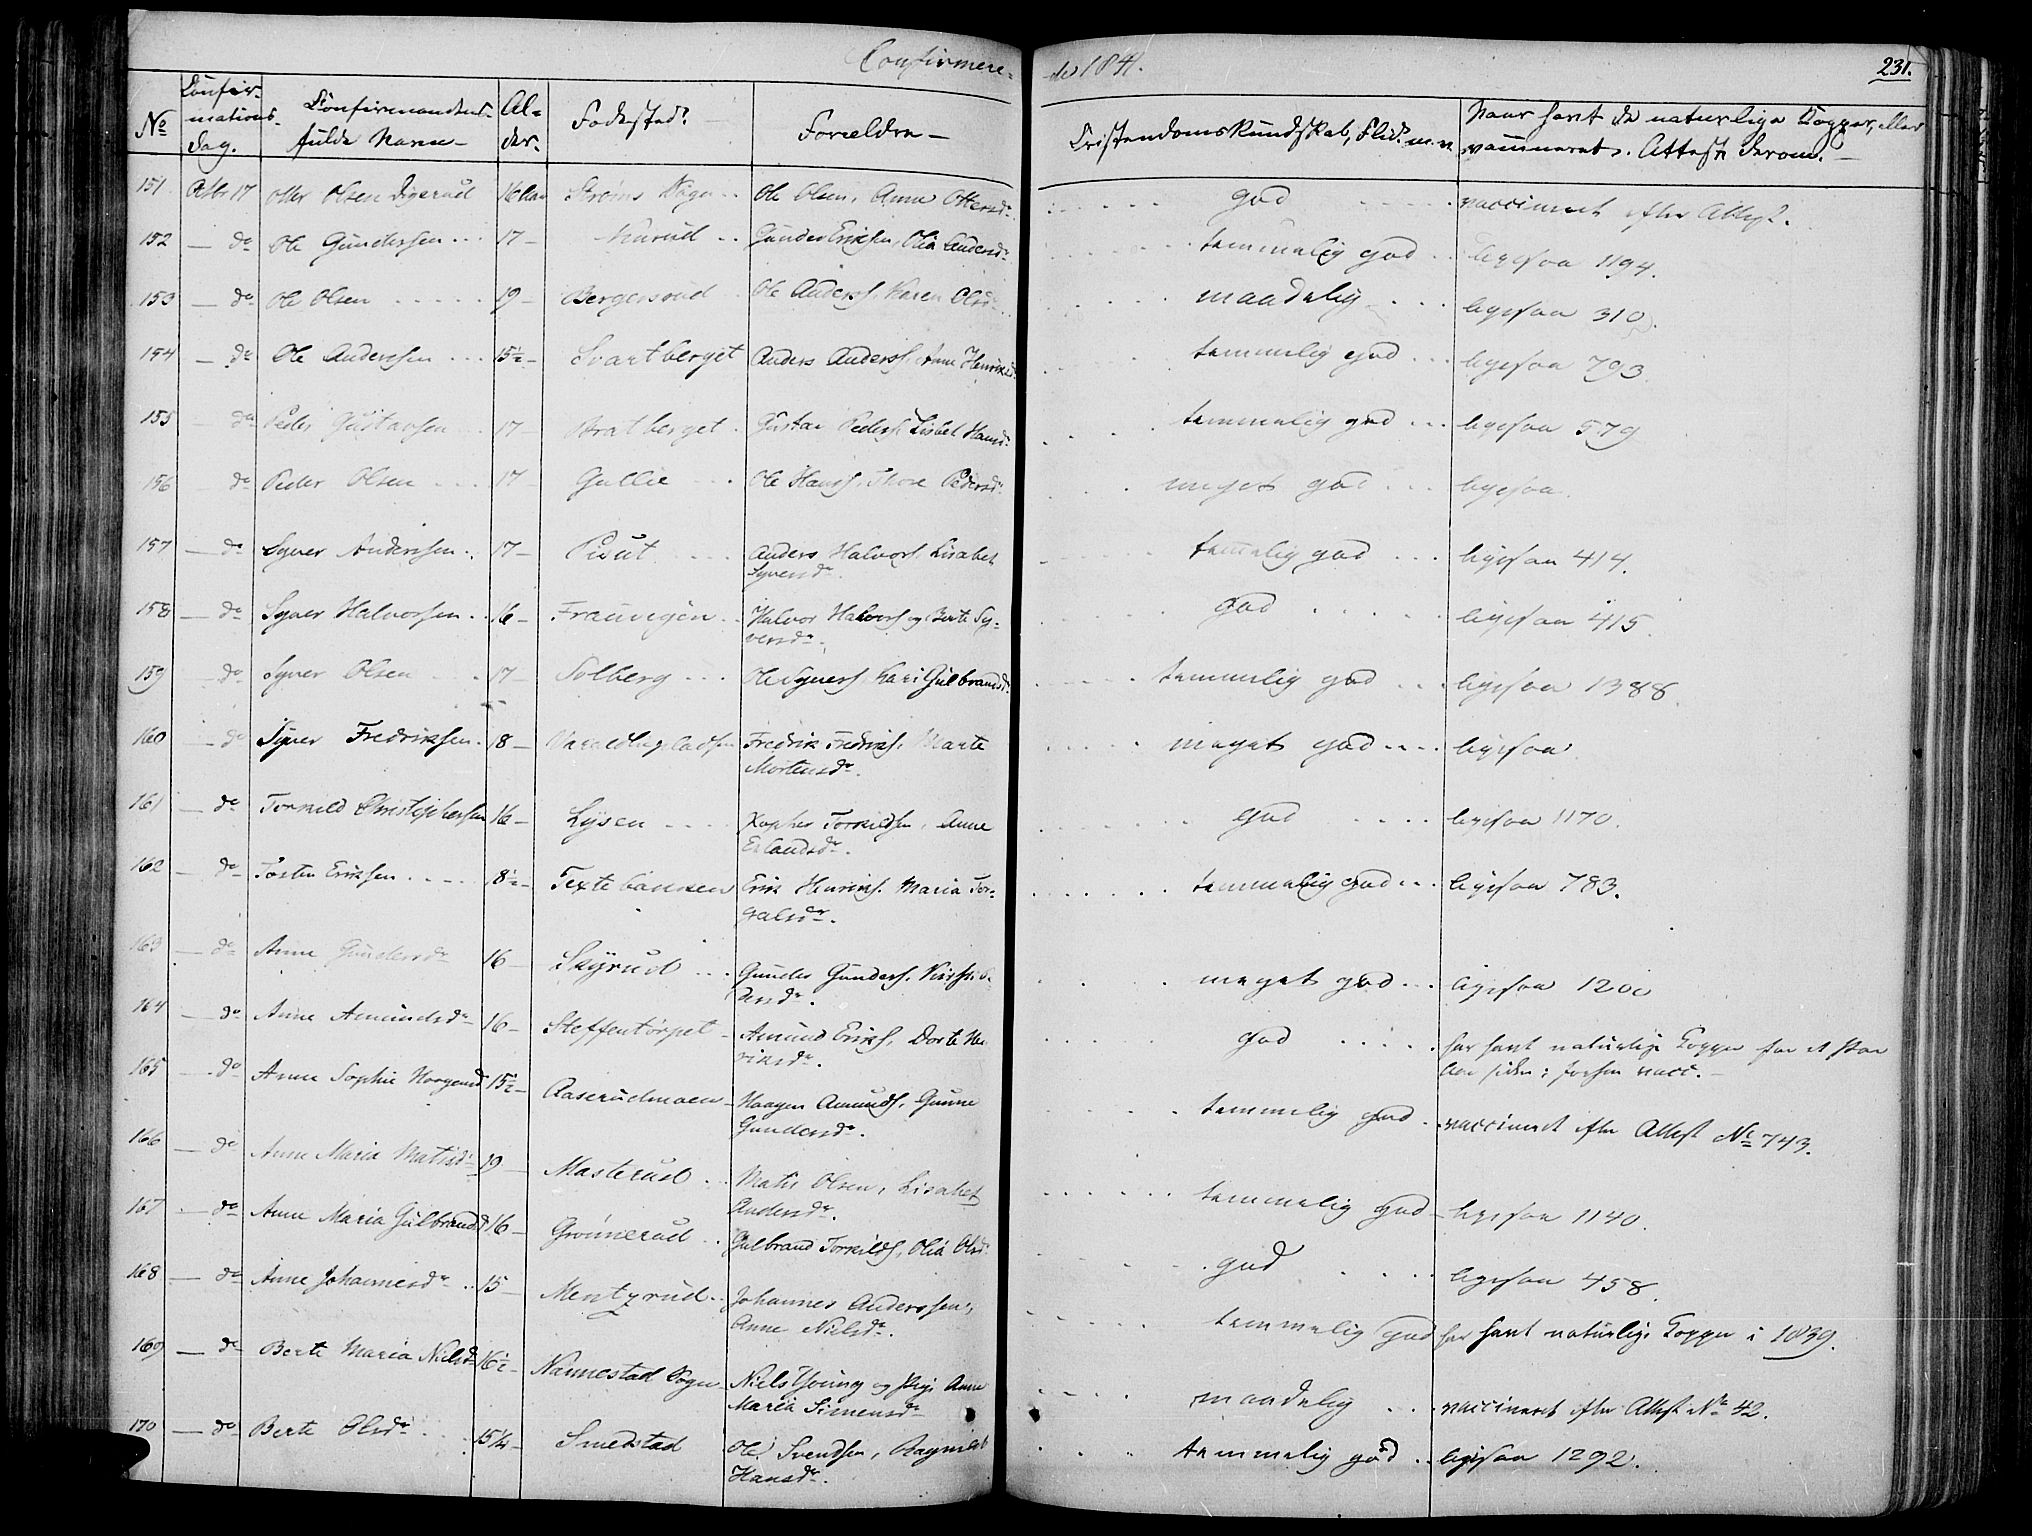 Confirmere- de 1841. 231.
No Confirmations-dag. Confirmandens fulde Navn Alder. Fødested Forældre Cristendomskundskab, Flid m. v. Naar havt de naturlige Kopper, eller vaccineret. Attest derom.
151 Octbr 17 Otter Olsen Digerud 16 Aar Strøms Sogn Ole Olsen, Anne Ottersdr god vaccineret efter Attest.
152 — do Ole Gundersen 17 — Gunder Eriksen, Olia Andersdr temmelig god ligesaa 1194.
153 — do Ole Olsen 19 — Bergersrud Ole Anderss, Karen Olsdr maadelig ligesaa 310.
154 — do Ole Anderssen 15½ — Svartberget Anders Anderss, Anne Henriksdr temmelig god ligesaa 793
155 — do Peder Gustavsen 17 — Bratberget Gustav Peders, Lisbet Hansdr temmelig god ligesaa 579
156 do Peder Olsen 17 — Gullie Ole Hanss, Thore Pedersdr meget god ligesaa
157 — do Syver Anderssen 17 — Pisut Anders Halvors, Lisabet
Syversdr. temmelig god ligesaa 414.
158 — do Syver Halvorsen 16 — Halvor Halvors og Berte Sy-
versdr. god ligesaa 415
159 — do Syver Olsen 17 — Solberg Ole Syvers, Kari Gulbrandsdr temmelig god ligesaa 1388
160 — do Syver Fredriksen 18 — Fredrik Fredriks, Marte
Mortensdr. meget god ligesaa
161 — do Torkild Christophersen 16 — Lysen Xopher Torkildsen, Anne
Erlandsdr. god ligesaa 1170.
162 — do Tosten Eriksen 18½ — Erik Henriks, Maria Tor-
galsdr. temmelig god ligesaa 783.
163 — do Anne Gundersdr 16 — Skyrud Gunder Gunders,
meget god ligesaa 1200
164 — do Anne Amundsdr 16 — Steffentorpet Amund Eriks, Dorte Hen
riksdr. god har havt naturlige Kopper for et Par
Aar siden; forhen vacc.
165 — do Anne Sophie Haagensd 15½ — Aaserudmoen Haagen Amunds, Gunne
Gundersdr. temmelig god vaccineret efter Attest No 743.
166 — do Anne Maria Matisdr 19 — Masterud Matis Olsen, Lisabet
Andersdr. temmelig god ligesaa 1140.
167 — do Anne Maria Gulbrandsd 16 — Grønnerud Gulbrand Torkilds, Olia Olsdr god ligesaa 458
168 — do Anne Johannesdr 15 — Mentzrud Johannes Anderssen,
Anne Nielsdr. temmelig god har havt naturlige Kopper i 1839.
169 — do Berte Maria Nielsd 16½ — Nannestad Sogn Niels Thoring og Pige Anne
Maria Simensdr maadelig vaccineret efter Attest No 42.
170 — do Berte Olsdr 15¼ — Smedstad Ole Svendsen, Ragnild
Hansdr. temmelig god ligesaa 1292.